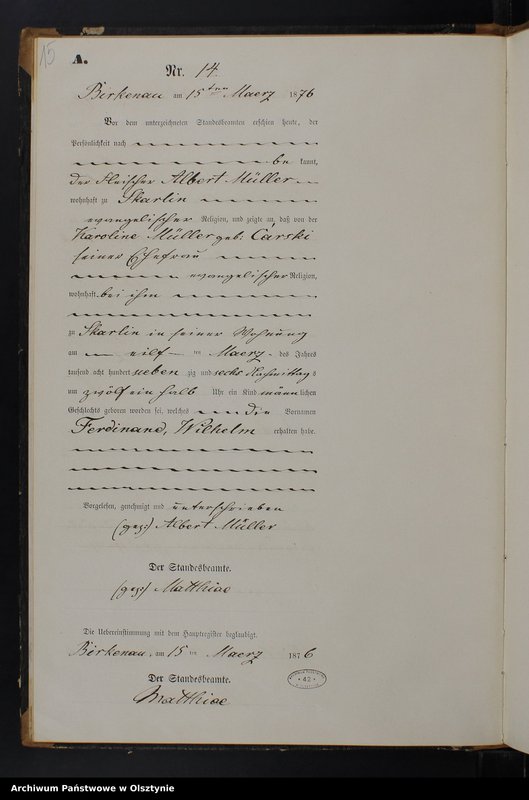 15
A.
Nr. 14.
Birkenau am 15ten Maerz 1876
Vor dem unterzeichneten Standesbeamten erschien heute, der
Persönlichkeit nach
be kannt,
der Fleischer Albert Müller
wohnhaft zu Skarlin
evangelischer Religion, und zeigte an, daß von der
Karoline Müller geb: Carski
seiner Ehefrau
evangelischer Religion,
wohnhaft bei ihm
zu Skarlin in seiner Wohnung
am eilf ten Maerz des Jahres
tausend acht hundert sieben zig und sechs Nachmittag s
um zwölf ein halb Uhr ein Kind männ lichen
Geschlechts geboren worden sei, welches die Vornamen
Ferdinand, Wilhelm erhalten habe.
Vorgelesen, genehmigt und unterschrieben
(gez:) Albert Müller
Der Standesbeamte.
(gez) Matthiae
Die Uebereinstimmung mit dem Hauptregister beglaubigt.
Birkenau, am 15 ten Maerz 1876
Der Standesbeamte.
Matthiae
* 42 *
Archiwum Państwowe w Olsztynie